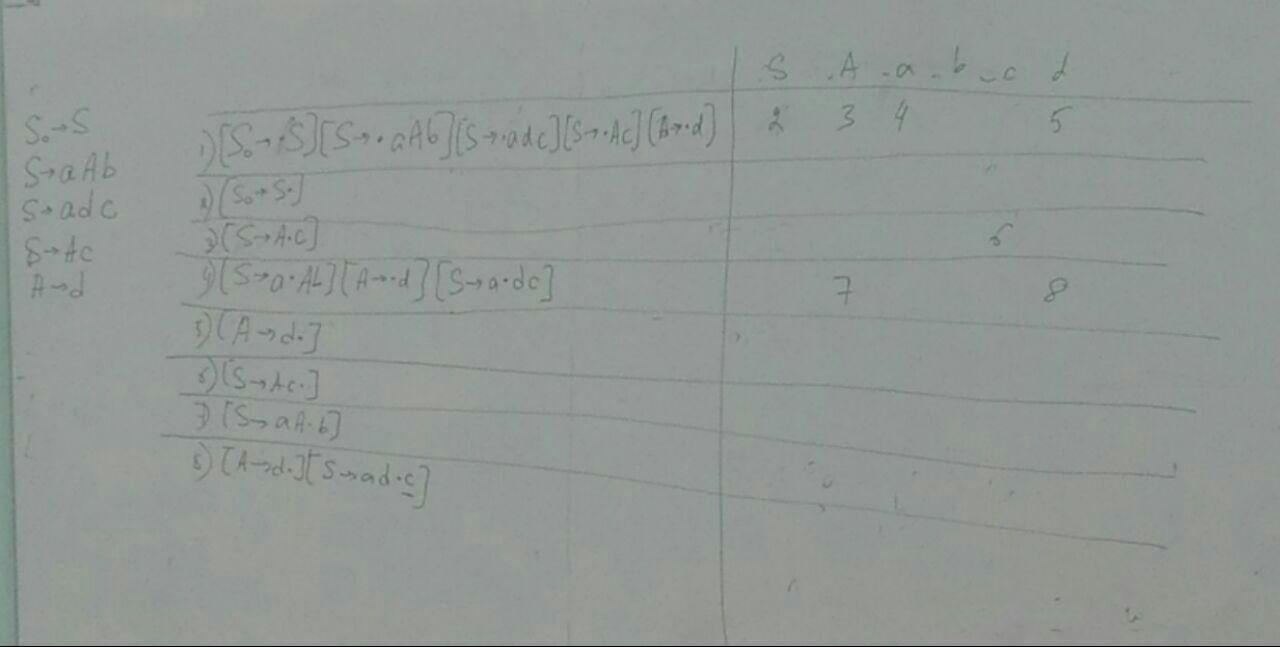 S A a b c d
S₀→S
S→aAb
S→adc
S→Ac
A→d
1) [S₀→·S][S→·aAb][S→·adc][S→·Ac][A→·d] 2 3 4 5
2) [S₀→S·]
3) [S→A·c] 6
4) [S→a·Ab][A→·d][S→a·dc] 7 8
5) [A→d·]
6) [S→Ac·]
7) [S→aA·b]
8) [A→d·][S→ad·c]